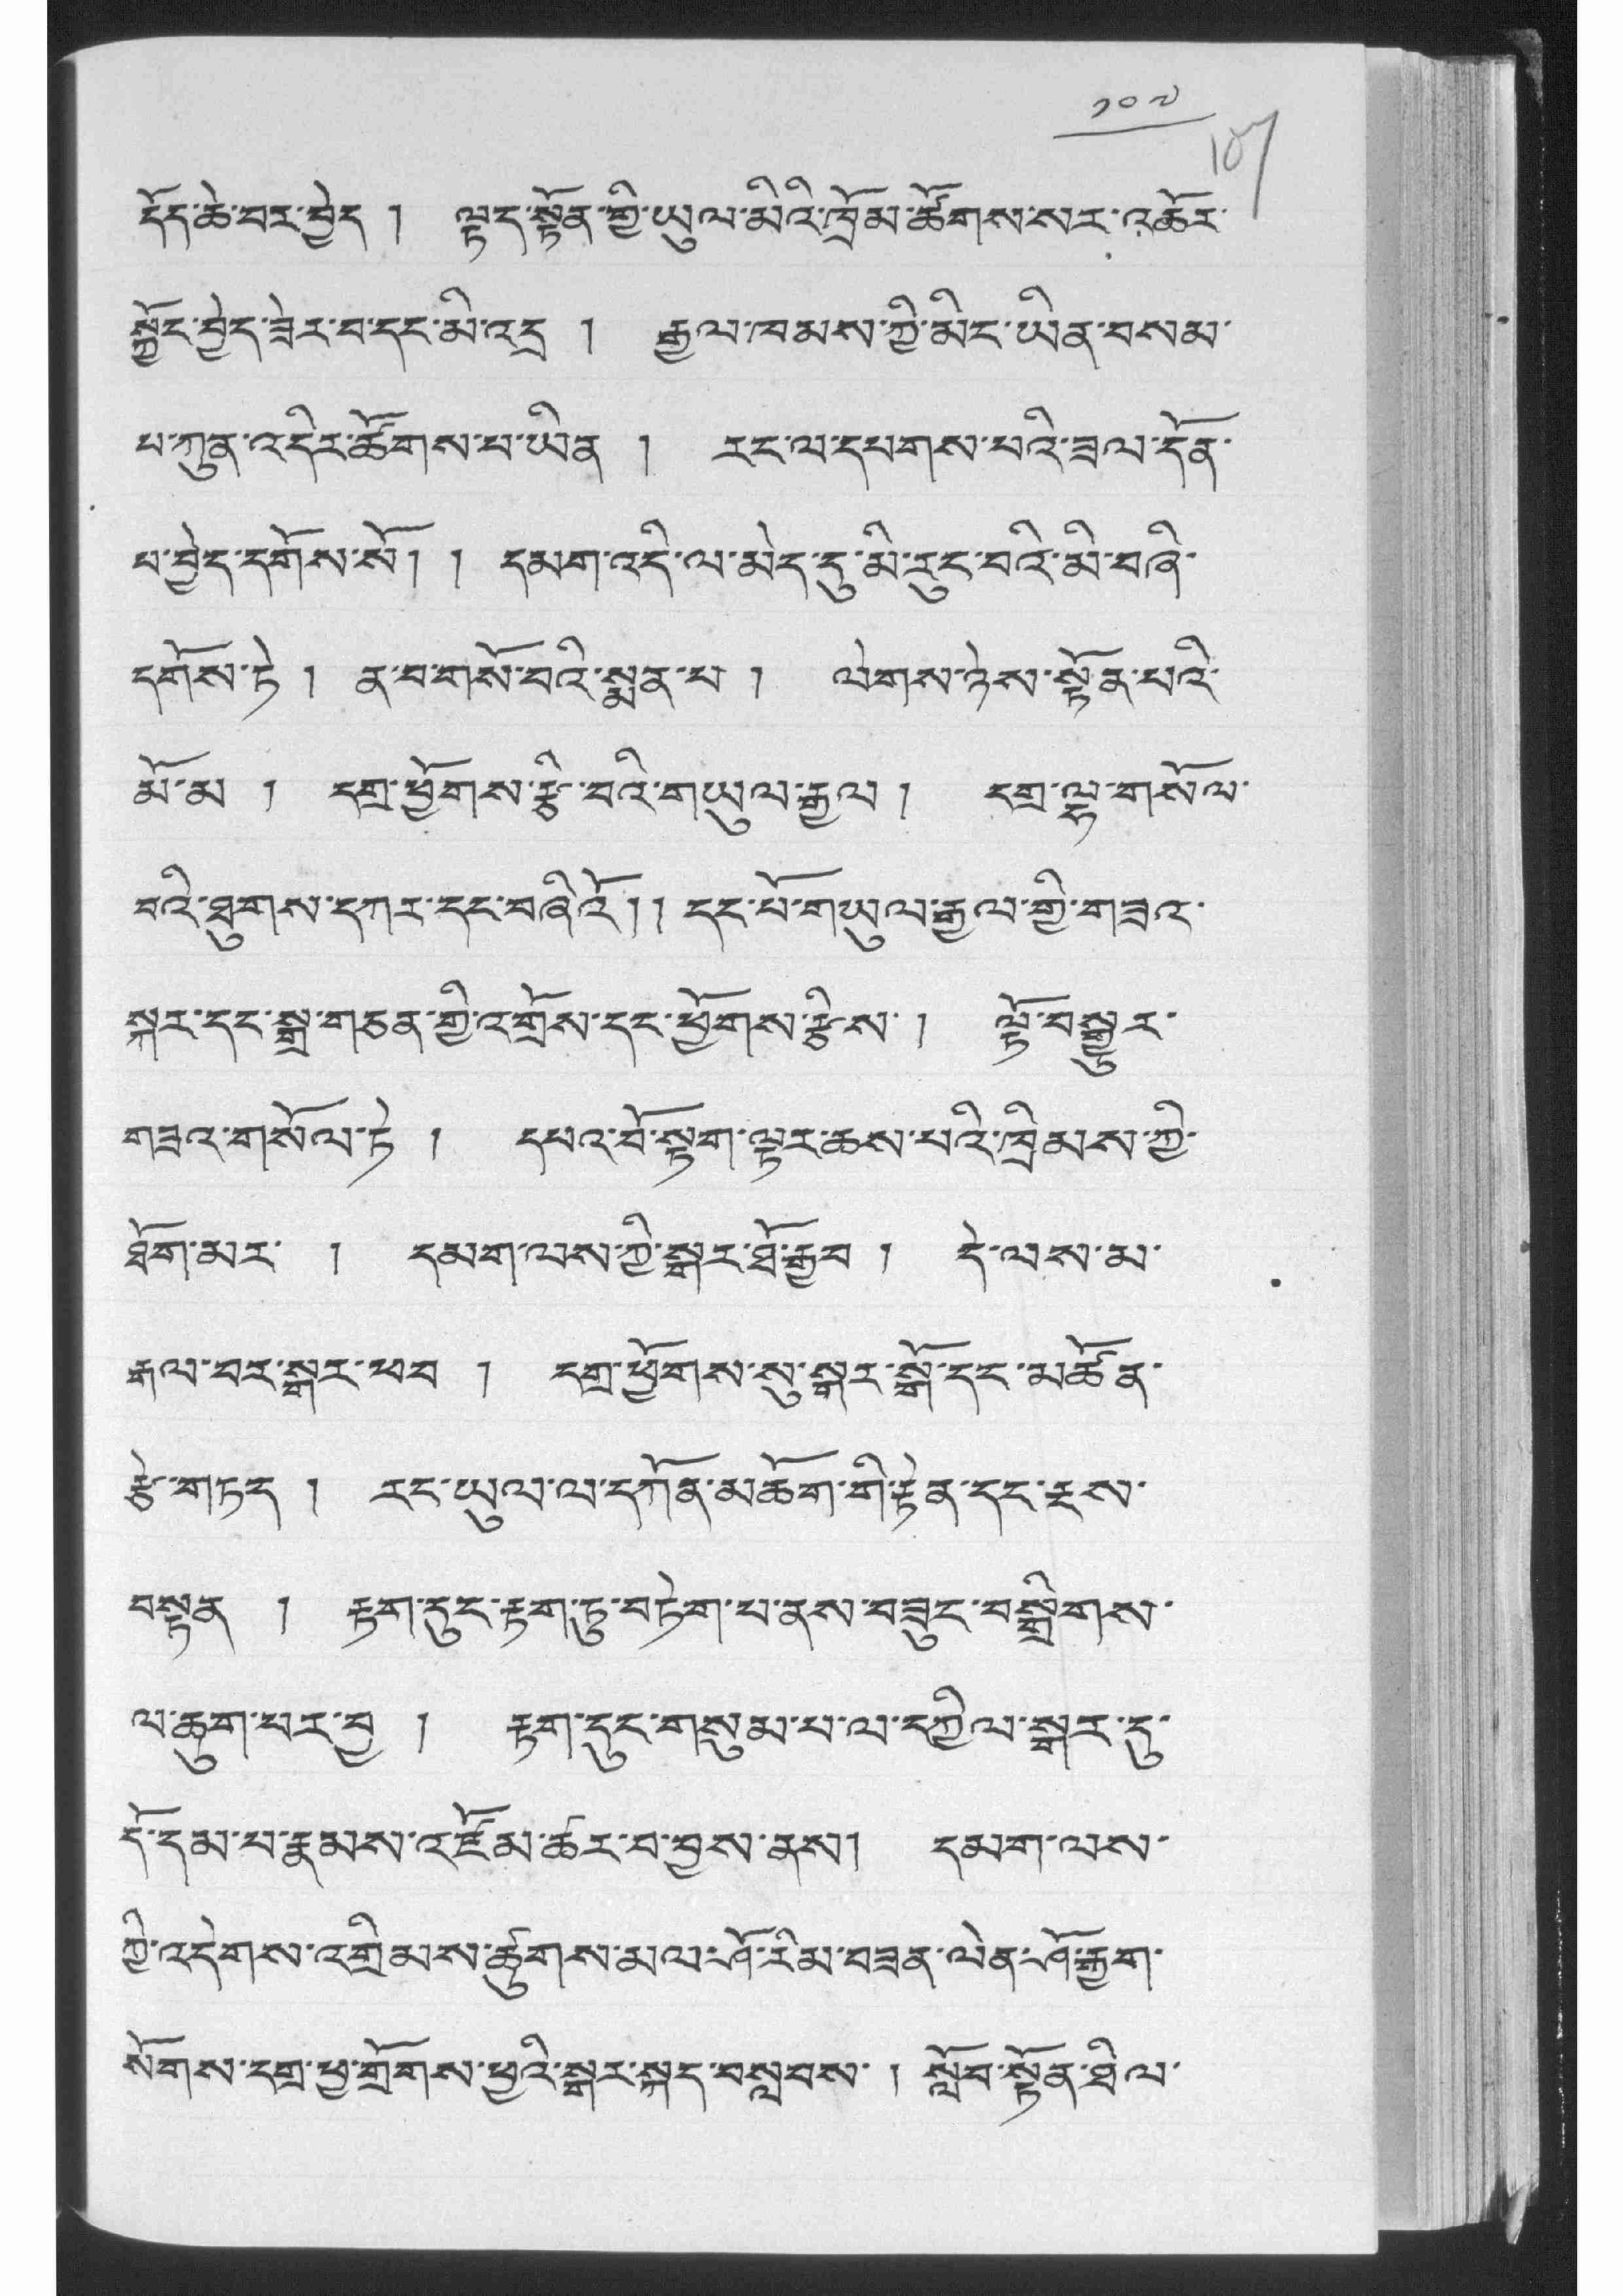 ༡༠༧
107
དོད་ཆེ་བར་བྱེད། ལྟད་སྟོན་གྱི་ཡུལ་མིའི་ཁྲོམ་ཚོགས་སར་འཆོར་
སྐྱོང་བྱེད་ཟེར་བ་དང་མི་འདྲ། རྒྱལ་ཁམས་ཀྱི་མིང་ཡིན་བསམ་
པ་ཀུན་འདིར་ཚོགས་པ་ཡིན། རང་ལ་དཔགས་པའི་ཟལ་དོན་
པ་བྱེད་དགོས་སོ།། དམག་འདི་ལ་མེད་དུ་མི་རུང་བའི་མི་བཞི་
དགོས་ཏེ། ན་བ་གསོ་བའི་སྨན་པ། ལེགས་ཉེས་སྟོན་པའི་
མོ་མ། དགྲ་ཕྱོགས་རྩི་བའི་གཡུལ་རྒྱལ། དགྲ་ལྷ་གསོལ་
བའི་ཐུགས་དཀར་དང་བཞིའོ།། དང་པོ་གཡུལ་རྒྱལ་གྱི་གཟའ་
སྐར་དང་སྒྲ་གཅན་གྱི་འགྲོས་དང་ཕྱོགས་རྩིས། ལྟོ་བསྒྱུར་
གཟའ་གསོལ་ཏེ། དཔའ་བོ་སྟག་ལྟར་ཆས་པའི་ཁྲིམས་ཀྱི་
ཐོག་མར། དམག་ལས་ཀྱི་སྒར་ཐོ་རྒྱབ། དེ་ལས་མ་
རྒལ་བར་སྒར་ཕབ། དགྲ་ཕྱོགས་སུ་སྒར་སྒོ་དང་མཚོན་
རྩེ་གཏད། རང་ཡུལ་ལ་དཀོན་མཆོག་གི་རྟེན་དང་རྔས་
བསྟན། རྟག་དུང་རྟག་ཏུ་བཏེག་པ་ནས་བཟུང་བསྒྲིགས་
ལ་ཆུག་པར་བྱ། རྟག་དུང་གསུམ་པ་ལ་དཀྱིལ་སྒར་དུ་
དོ་དམ་པ་རྣམས་འཛོམ་ཚར་བ་བྱས་ནས། དམག་ལས་
ཀྱི་འདེགས་འགྲིམས་ཚུགས་མལ་ཤོ་རིམ་བཟན་ལེན་ཤོ་རྒྱག་
སོགས་དགྲ་ཕྱ་གྲོགས་ཕྱའི་སྒར་སྐད་བསླབས། སློབ་སྟོན་ཐིལ་